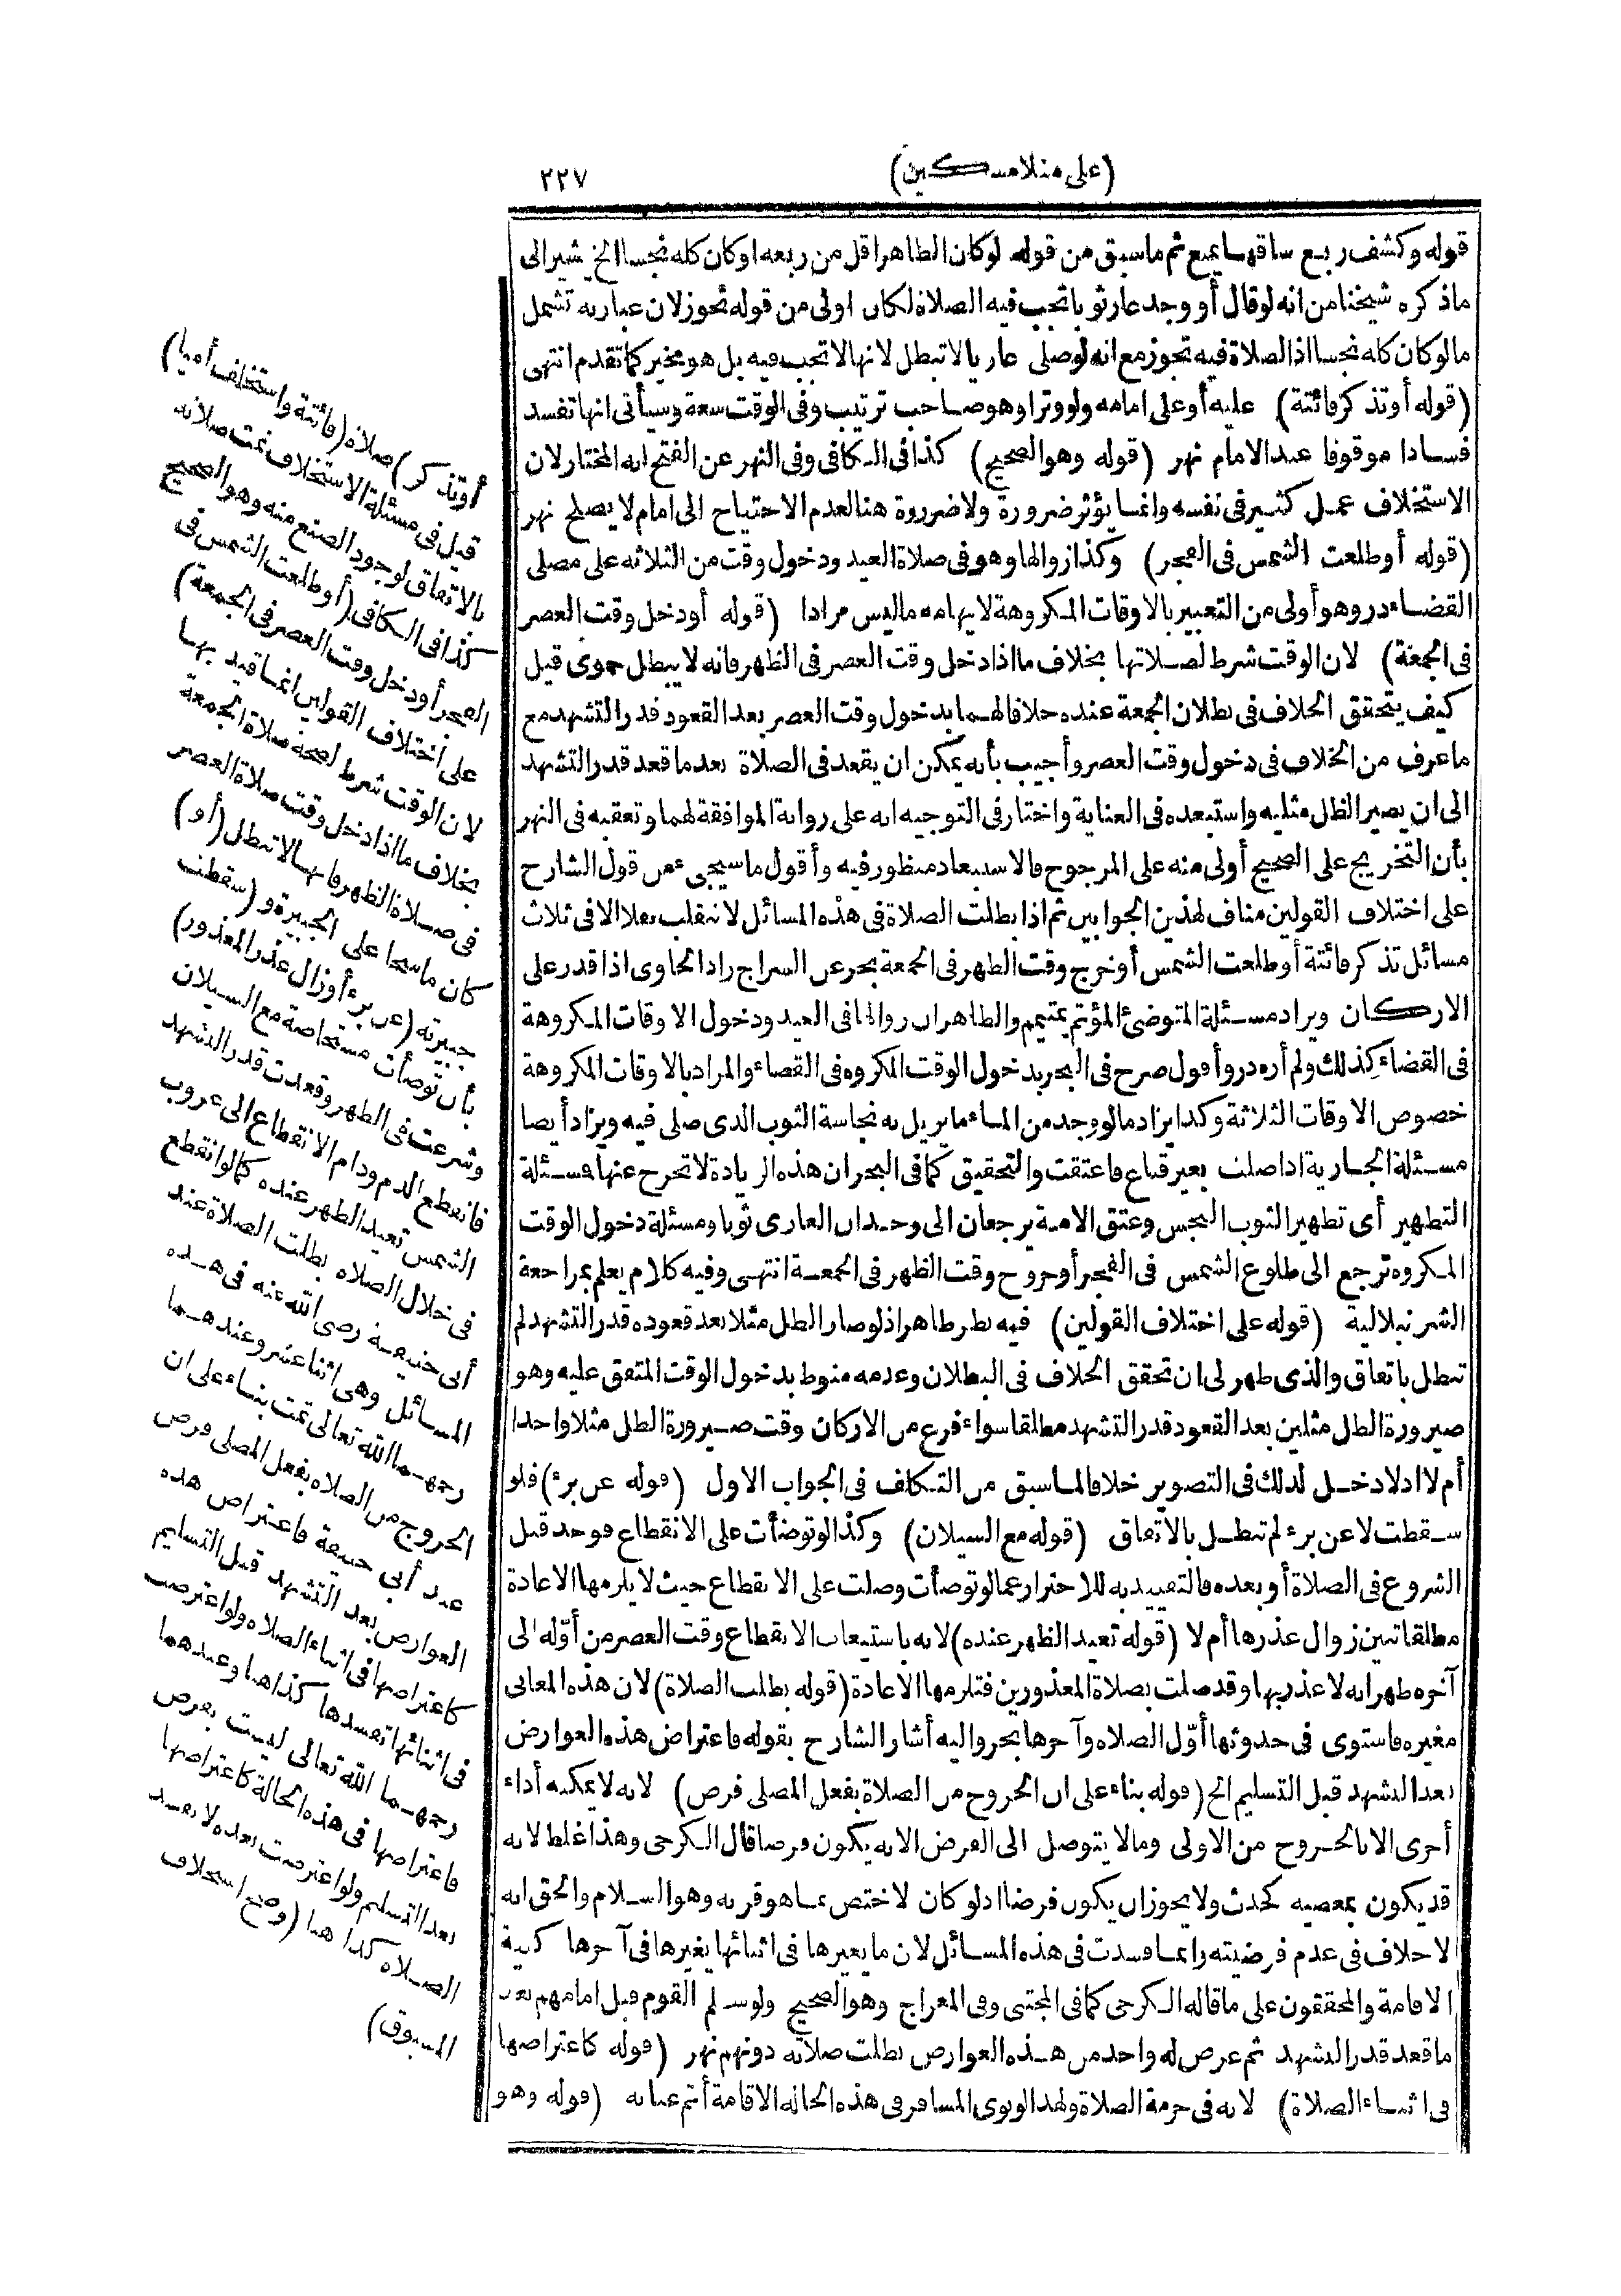 (على منلا مسكين) ٢٢٧
قوله وكشف ربع ساقها يمنع ثم ما سبق من قوله لو كان الطاهر اقل من ربعه او كان كله نجسا الخ يشير الى
ما ذكره شيخنا من انه لو قال أو وجد عار ثوبا تجب فيه الصلاة لكان اولى من قوله تجوز لان عبارته تشمل
ما لو كان كله نجسا اذ الصلاة فيه تجوز مع انه لو صلى عاريا لا تبطل لانها لا تجب فيه بل هو مخير كما تقدم انتهى
(قوله أو تذكر فائتة) عليه أو على امامه ولو وترا وهو صاحب ترتيب وفى الوقت سعة وسيأتى انها تفسد
فسادا موقوفا عند الامام نهر (قوله وهو الصحيح) كذا فى الكافى وفى النهر عن الفتح انه المختار لان
الاستخلاف عمل كثير فى نفسه وانما يؤثر ضرورة ولا ضرورة هنا لعدم الاحتياج الى امام لا يصلح نهر
(قوله أو طلعت الشمس فى الفجر) وكذا زوالها وهو فى صلاة العيد ودخول وقت من الثلاثة على مصلى
القضاء در وهو أولى من التعبير بالاوقات المكروهة لايهامه ما ليس مرادا (قوله أو دخل وقت العصر
فى الجمعة) لان الوقت شرط لصلاتها بخلاف ما اذا دخل وقت العصر فى الظهر فانه لا يبطل حموى قيل
كيف يتحقق الخلاف فى بطلان الجمعة عنده خلافا لهما بدخول وقت العصر بعد القعود قدر التشهد مع
ما عرف من الخلاف فى دخول وقت العصر وأجيب بأنه يمكن ان يقعد فى الصلاة بعد ما قعد قدر التشهد
الى ان يصير الظل مثليه واستبعده فى العناية واختار فى التوجيه انه على رواية الموافقة لهما وتعقبه فى النهر
بأن التخريج على الصحيح أولى منه على المرجوح فالاستبعاد منظور فيه وأقول ما سيجىء من قول الشارح
على اختلاف القولين مناف لهذين الجوابين ثم اذا بطلت الصلاة فى هذه المسائل لا تنقلب نفلا الا فى ثلاث
مسائل تذكر فائتة أو طلعت الشمس أو خرج وقت الظهر فى الجمعة بحر عن السراج زاد الحاوى اذا قدر على
الاركان ويراد مسئلة المتوضئ المؤتم بمتيمم والظاهر ان زوالها فى العيد ودخول الاوقات المكروهة
فى القضاء كذلك ولم أره در وأقول صرح فى البحر بدخول الوقت المكروه فى القضاء والمراد بالاوقات المكروهة
خصوص الاوقات الثلاثة وكذا يزاد ما لو وجد من الماء ما يزيل به نجاسة الثوب الذى صلى فيه ويزاد أيضا
مسئلة الجارية اذا صلت بغير قناع فاعتقت والتحقيق كما فى البحر ان هذه الزيادة لا تخرج عنها فمسئلة
التطهير أى تطهير الثوب النجس وعتق الامة يرجعان الى وجدان العارى ثوبا ومسئلة دخول الوقت
المكروه ترجع الى طلوع الشمس فى الفجر أو خروج وقت الظهر فى الجمعة انتهى وفيه كلام يعلم بمراجعة
الشرنبلالية (قوله على اختلاف القولين) فيه نظر ظاهر اذ لو صار الظل مثلا بعد قعوده قدر التشهد لم
تبطل باتفاق والذى ظهر لى ان تحقق الخلاف فى البطلان وعدمه منوط بدخول الوقت المتفق عليه وهو
صيرورة الظل مثلين بعد القعود قدر التشهد مطلقا سواء فرغ من الاركان وقت صيرورة الظل مثلا واحدا
أم لا اذ لا دخل لذلك فى التصوير خلافا لما سبق من التكلف فى الجواب الاول (قوله عن برء) فلو
سقطت لا عن برء لم تبطل بالاتفاق (قوله مع السيلان) وكذا لو توضأت على الانقطاع فوجد قبل
الشروع فى الصلاة أو بعده فالتقييد به للاحتراز عما لو توضأت وصلت على الانقطاع حيث لا يلزمها الاعادة
مطلقا تبين زوال عذرها أم لا (قوله تعيد الظهر عنده) لانه باستيعاب الانقطاع وقت العصر من أوّله الى
آخره ظهر انه لا عذر بها وقد صلت بصلاة المعذورين فتلزمها الاعادة (قوله بطلت الصلاة) لان هذه المعانى
مغيره فاستوى فى حدوثها أوّل الصلاه وآخرها بحر واليه أشار الشارح بقوله فاعتراض هذه العوارض
بعد التشهد قبل التسليم الخ (قوله بناء على ان الخروج من الصلاة بفعل المصلى فرض) لانه لا يمكنه أداء
أخرى الا بالخروج من الاولى وما لا يتوصل الى الفرض الا به يكون فرضا قال الكرخى وهذا غلط لانه
قد يكون بمعصية كحدث ولا يجوز ان يكون فرضا اذ لو كان لاختص بما هو قربه وهو السلام والحق انه
لا خلاف فى عدم فرضيته وانما فسدت فى هذه المسائل لان ما يغيرها فى اثنائها يغيرها فى آخرها كنية
الاقامة والمحققون على ما قاله الكرخى كما فى المجتبى وفى المعراج وهو الصحيح ولو سلم القوم قبل امامهم بعد
ما قعد قدر التشهد ثم عرض له واحد من هذه العوارض بطلت صلاته دونهم نهر (قوله كاعتراضها
فى اثناء الصلاة) لانه فى حرمة الصلاة ولهذا لو نوى المسافر فى هذه الحالة الاقامة أتم عناية (قوله وهو
أو تذكر) صلاة (فائتة واستخلف أميا)
قيل فى مسئلة الاستخلاف تمت صلاته
بالاتفاق لوجود الصنع منه وهو الصحيح
كذا فى الكافى (أو طلعت الشمس فى
الفجر أو دخل وقت العصر فى الجمعة)
على اختلاف القولين انما قيد بها
لان الوقت شرط لصحة صلاة الجمعة
بخلاف ما اذا دخل وقت صلاة العصر
فى صلاة الظهر فانها لا تبطل (أو)
كان ماسحا على الجبيرة و (سقطت
جبيرته (عن برء أو زال عذر المعذور)
بأن توضأت مستحاضة مع السيلان
وشرعت فى الظهر وقعدت قدر التشهد
فانقطع الدم ودام الانقطاع الى غروب
الشمس تعيد الظهر عنده كما لو انقطع
فى خلال الصلاه بطلت الصلاة عند
أبى حنيفة رضى الله عنه فى هذه
المسائل وهى اثنا عشر وعندهما
رحمهما الله تعالى تمت بناء على ان
الخروج من الصلاه بفعل المصلى فرض
عند أبى حنيفة فاعتراض هذه
العوارض بعد التشهد قبل التسليم
كاعتراضها فى اثناء الصلاه ولو اعترضت
فى اثنائها تفسدها كذا هنا وعندهما
رحمهما الله تعالى ليست بفرض
فاعتراضها فى هذه الحالة كاعتراضها
بعد التسليم ولو اعترضت بعده لا تفسد
الصلاه كذا هنا (وصح استخلاف
المسبوق)